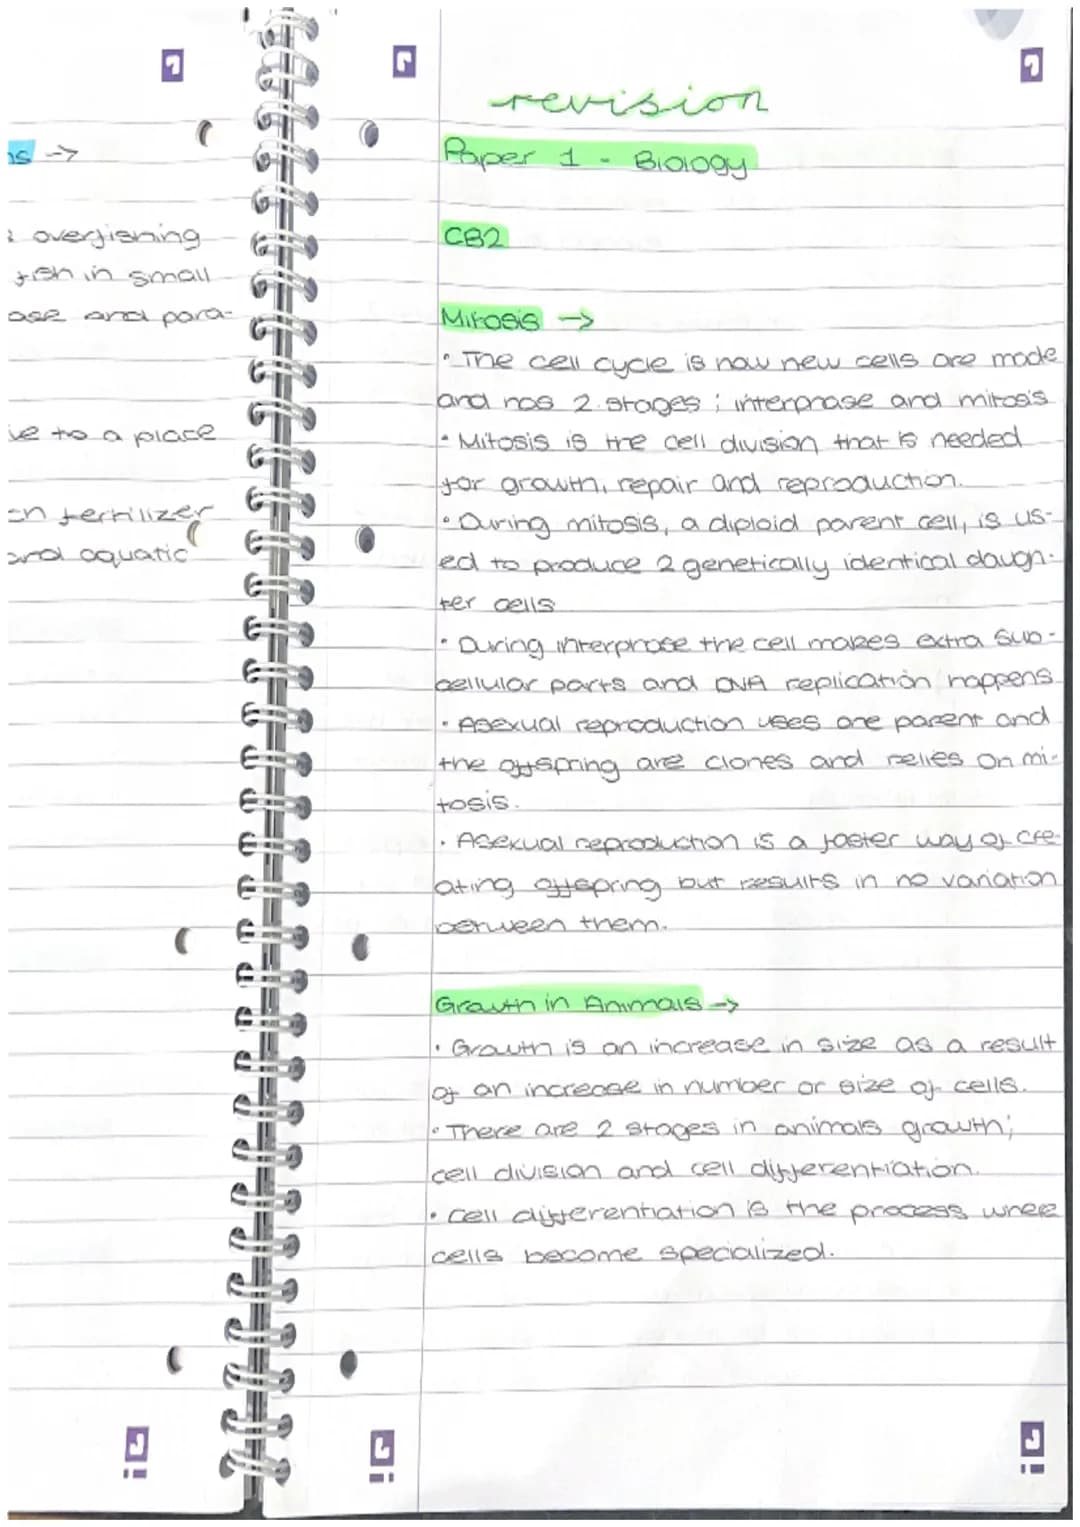 revision
Paper 1 - Biology
CB2
Mitosis →
• The cell cycle is how new cells are made
and has 2 stages ; interphase and mitosis
• Mitosis is the cell division that is needed
for growth, repair and reproduction.
• During mitosis, a diploid parent cell, is us-
ed to produce 2 genetically identical daugh-
ter cells
• During interphase the cell makes extra sub-
cellular parts and DNA replication happens
• Asexual reproduction uses one parent and
the offspring are clones and relies on mi-
tosis.
• Asexual reproduction is a faster way of cre-
ating offspring but results in no variation
between them.
Growth in Animals →
• Growth is an increase in size as a result
of an increase in number or size of cells.
• There are 2 stages in animals growth;
cell division and cell differentiation.
• cell differentiation is the process where
cells become specialized.
ns →
overfishing
fish in small
ase and para-
ve to a place
en fertilizer
and aquatic